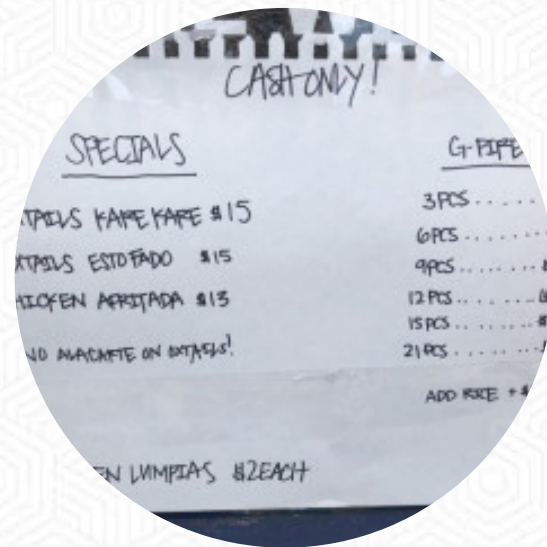 CASH ONLY!
SPECIALS
TAILS KARE KARE $15
XTAILS ESTOFADO $15
HICKEN AFRITADA $13
NO ALACARTE ON OXTAILS!
EN LUMPIAS $2 EACH
G-FIRE
3 PCS . . . . .
6 PCS . . . . . . .
9 PCS . . . . . . .
12 PCS . . . . . .
15 PCS . . . . . . $
21 PCS . . . . . .
ADD RICE + $